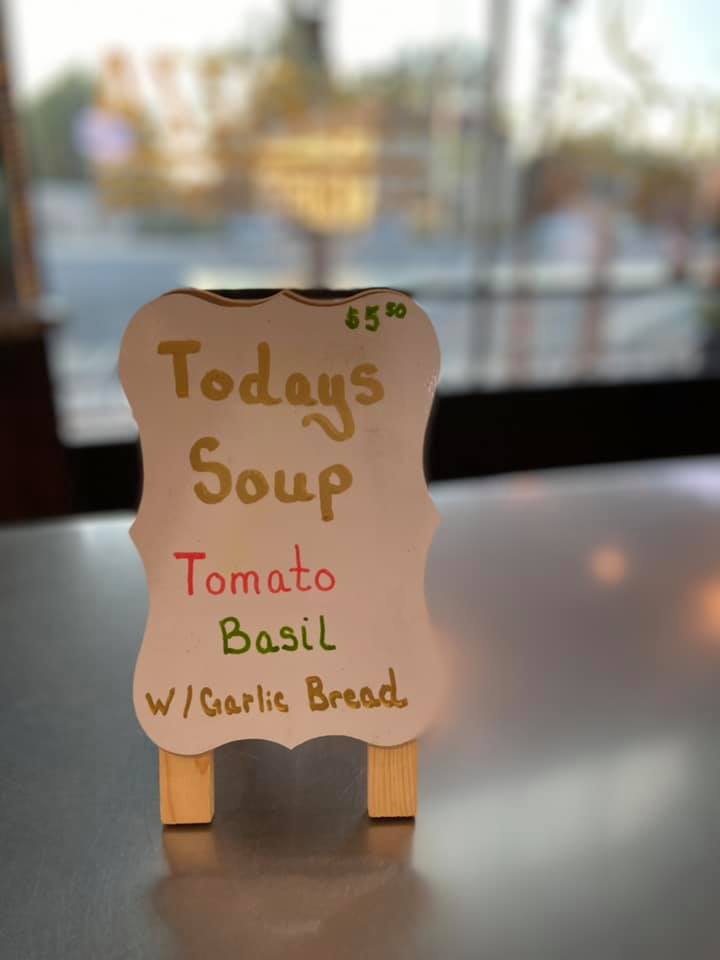 $5.50
Todays
Soup
Tomato
Basil
W/Garlic Bread